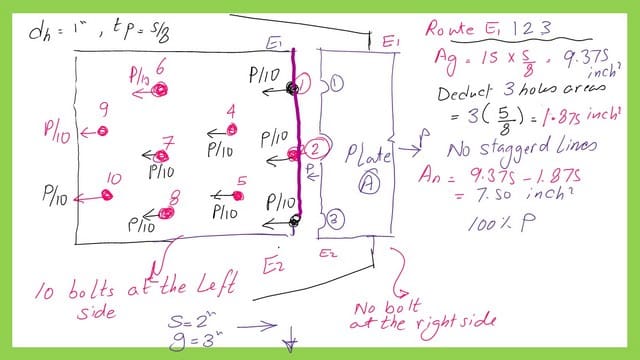 dh = 1", tp = 5/8
E1
E1
P/10 6
P/10
1
1
9
4
P/10
P/10
P/10
2
7
P/10
P
P
Plate
A
10
5
P/10
P/10
8
P/10
P/10
3
E2
E2
10 bolts at the left
side
S = 2"
g = 3"
No bolt
at the right side
Route E1 1 2 3
Ag = 15 x 5/8 = 9.375
inch²
Deduct 3 holes areas
= 3(5/8) = 1.875 inch²
No staggerd lines
An = 9.375 - 1.875
= 7.50 inch²
100% P